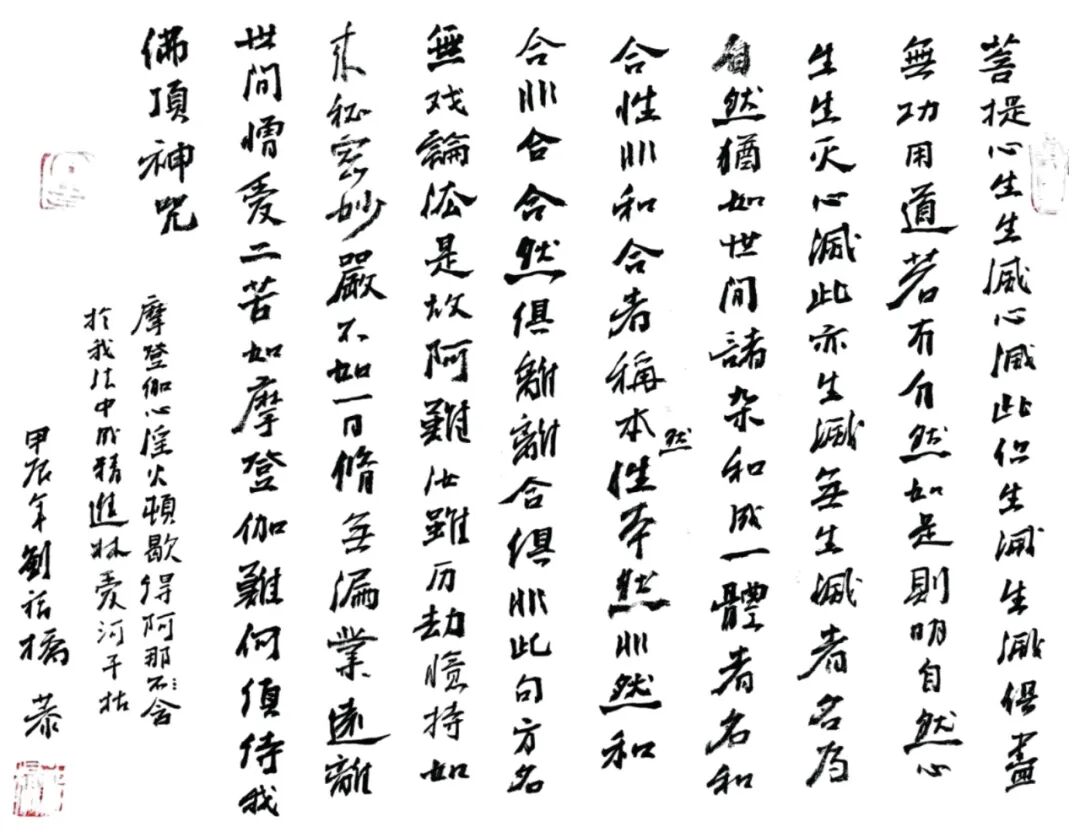 菩提心生生滅心滅此但生滅生滅俱盡
無功用道若有自然如是則明自然心
生生灭心滅此亦生滅無生滅者名為
自然猶如世間諸杂和成一體者名和
合性非和合者稱本然性本然非然和
合非合合然俱離離合俱非此句方名
無戏論法是故阿難汝雖历劫憶持如
来秘密妙嚴不如一日脩無漏業遠離
世間憎爱二苦如摩登伽難何須待我
佛頂神咒
摩登伽心淫火頓歇得阿那不含
於我法中成精進林爱河干枯
甲辰年劉橋恭